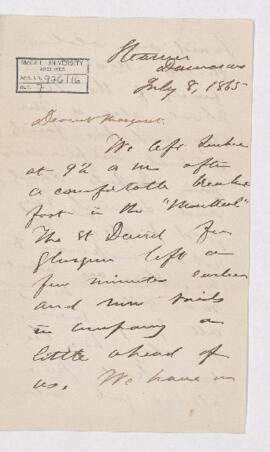 McGILL UNIVERSITY
ARCHIVES
ACC. NO. 976/16
REF. 7
Steamer
Damascus
July 8, 1865
Dearest Margaret,
We left Quebec
at 9½ a m after
a comfortable break
fast in the "Montreal"
The St David for
Glasgow left a
few minutes earlier
and now sails
in company a
little ahead of
us. We have on